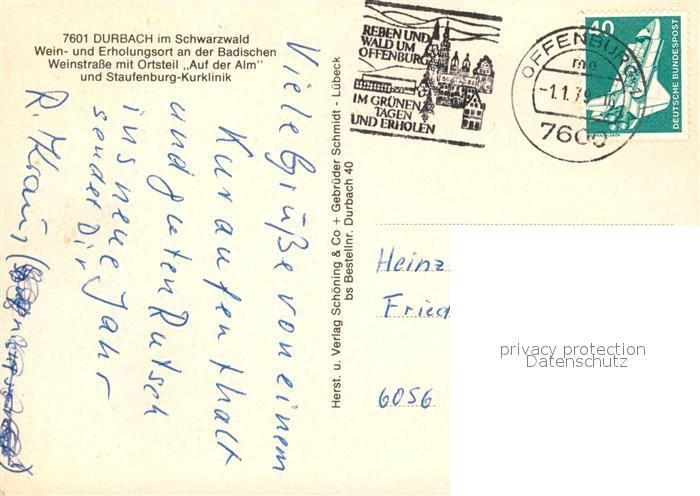 7601 DURBACH im Schwarzwald
Wein- und Erholungsort an der Badischen
Weinstraße mit Ortsteil „Auf der Alm"
und Staufenburg-Kurklinik
REBEN UND
WALD UM
OFFENBURG
IM GRÜNEN
TAGEN
UND ERHOLEN
OFFENBURG
mc
-1.1.79
7600
40
DEUTSCHE BUNDESPOST
Viele Grüße von einem
Kuraufenthalt
und guten Rutsch
ins neue Jahr
sendet Dir
R. Kraus
Herst. u. Verlag Schöning & Co + Gebrüder Schmidt - Lübeck
bs Bestellnr. Durbach 40
Heinz
Fried
6056
privacy protection
Datenschutz